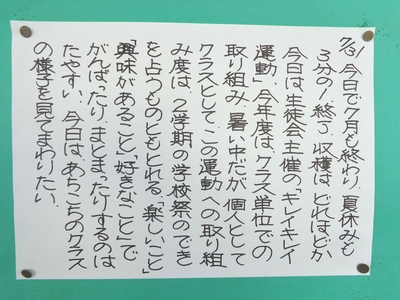 7/31 今日で7月も終わり。夏休みも
3分の1終了。収穫は、どれほどか
今日は、生徒会主催の「キレイキレイ
運動」。今年度は、クラス単位での
取り組み。暑い中だが、個人として
クラスとして、この運動への取り組
み度は、2学期の学校祭のでき
を占うものともとれる。「楽しいこと」
「興味があること」「好きなこと」で
がんばったり、まとまったりするのは
たやすい。今日は、あちこちのクラス
の様子を見てまわりたい。